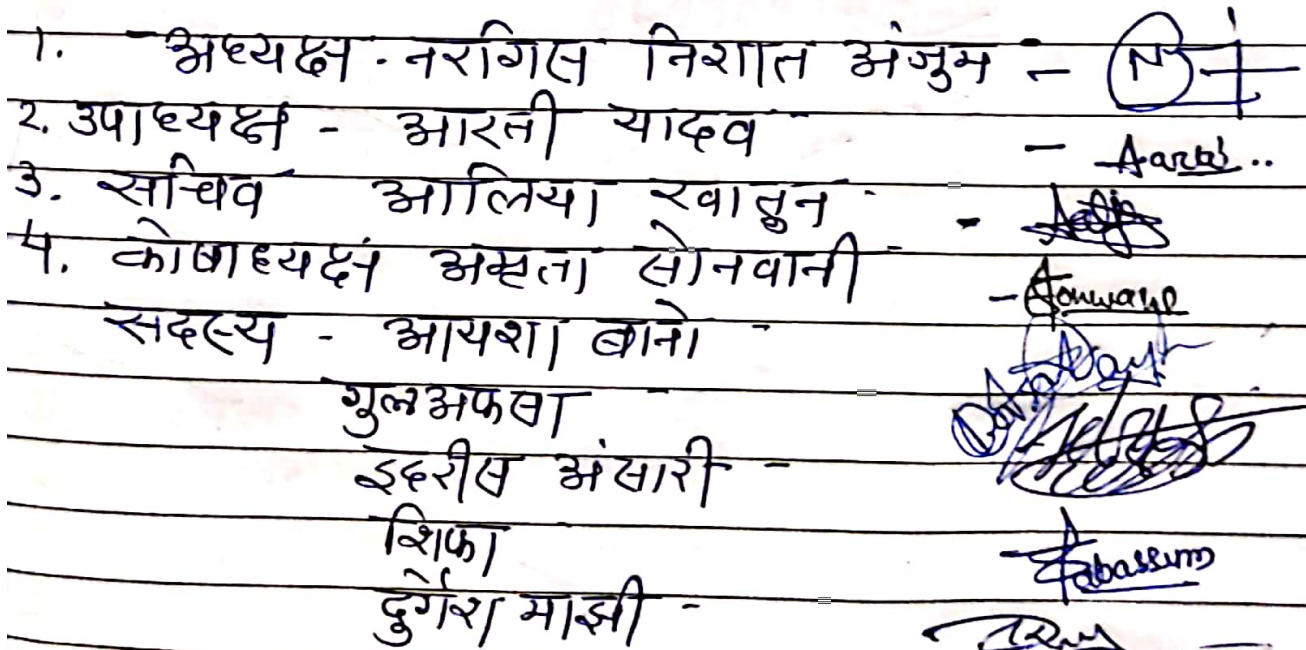 1. अध्यक्ष - नरगिस निशात अंजुम - N
2. उपाध्यक्ष - आरती यादव - Aarti..
3. सचिव आलिया खातुन -
4. कोषाध्यक्ष अमृता सोनवानी - Sonwani
सदस्य - आयशा बानो -
गुलअफसा -
इदरीस अंसारी -
शिफा Tabassum
दुर्गेश माझी -